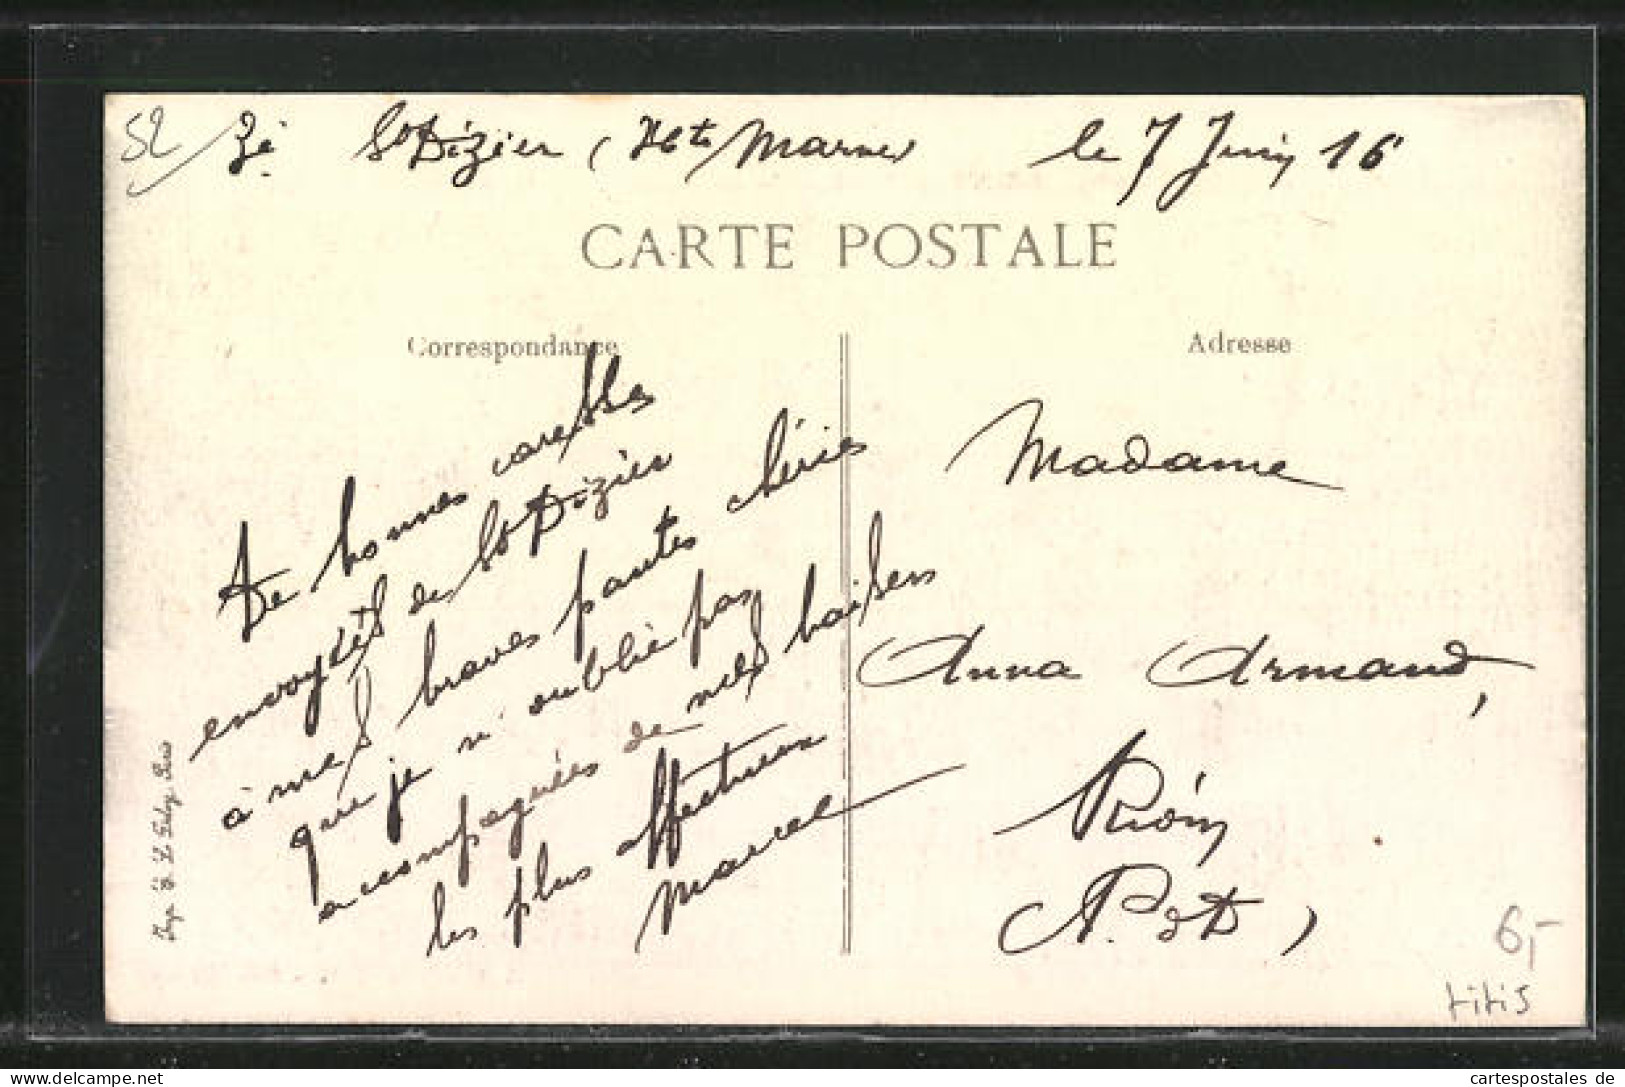 52 2è St Dizier (Hte Marne) le 7 Juin 16
CARTE POSTALE
Correspondance
De bonnes caresses
envoyées de St Dizier
à mes braves petites chéries
que je n'oublie pas
accompagnées de mes baisers
les plus affectueux
Marcel
Imp. Paris
Adresse
Madame
Anna Armand,
Riom
P. de D,
6,-
titis
delcampe.net
cartespostales de